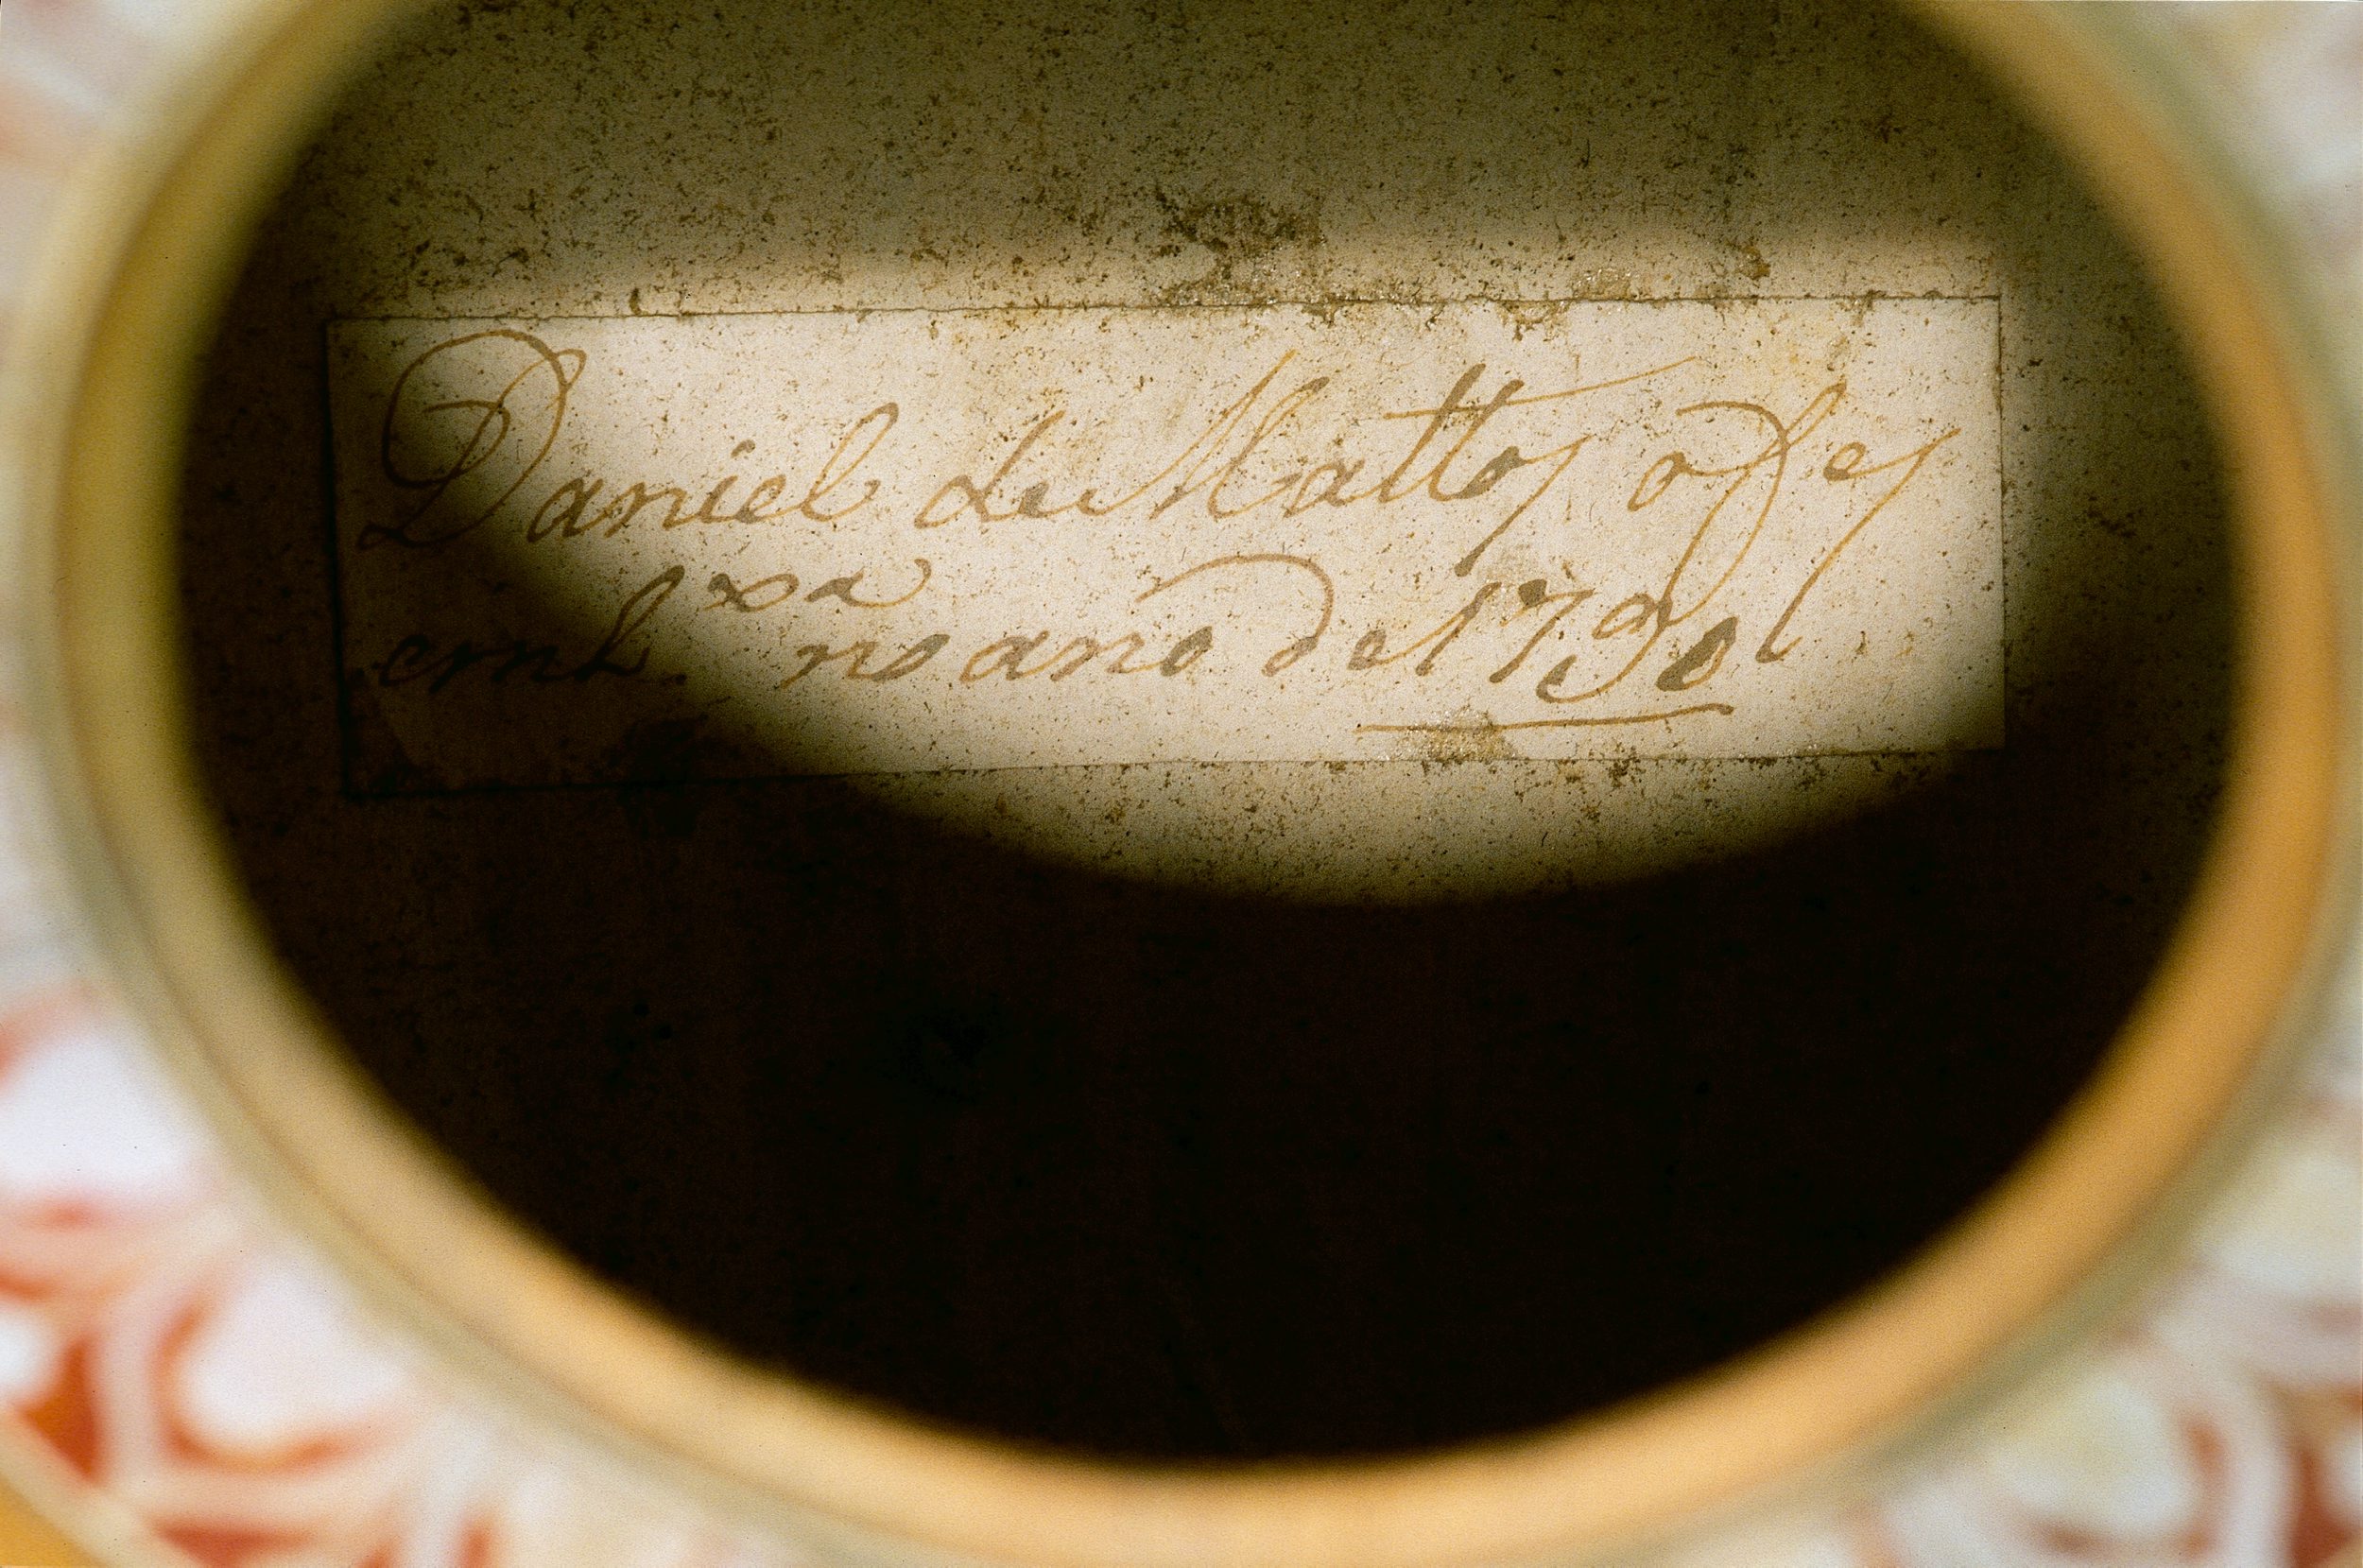 Daniel de Mattos o fes
em Lxa no ano de 1790